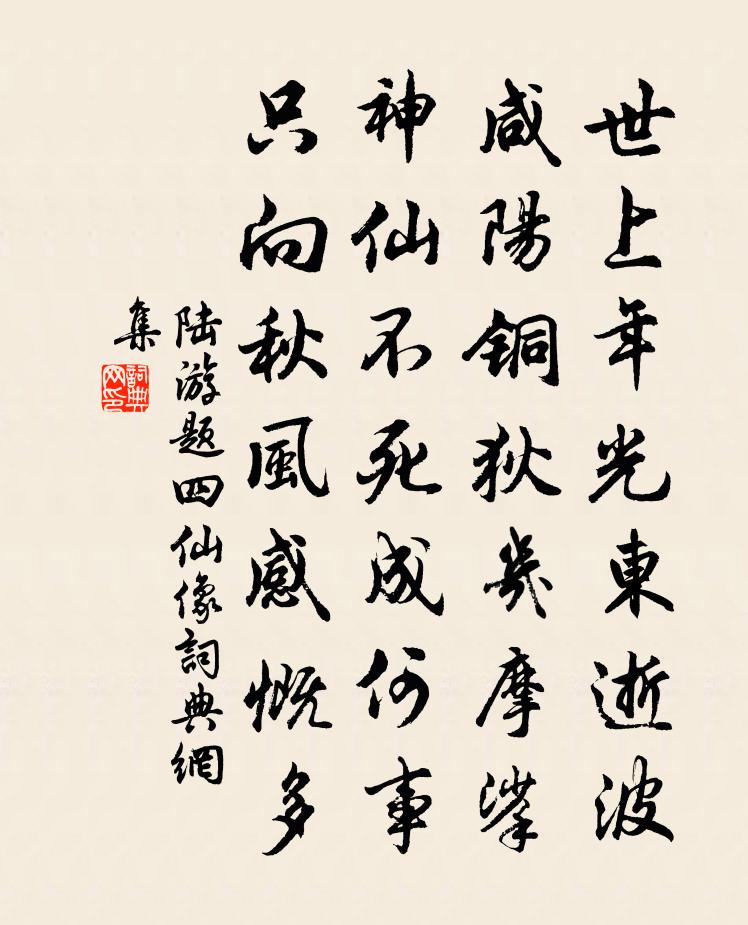 世上年光東逝波
咸陽銅狄幾摩挲
神仙不死成何事
只向秋風感慨多
陆游題四仙像詞典網
集
詞典
网印